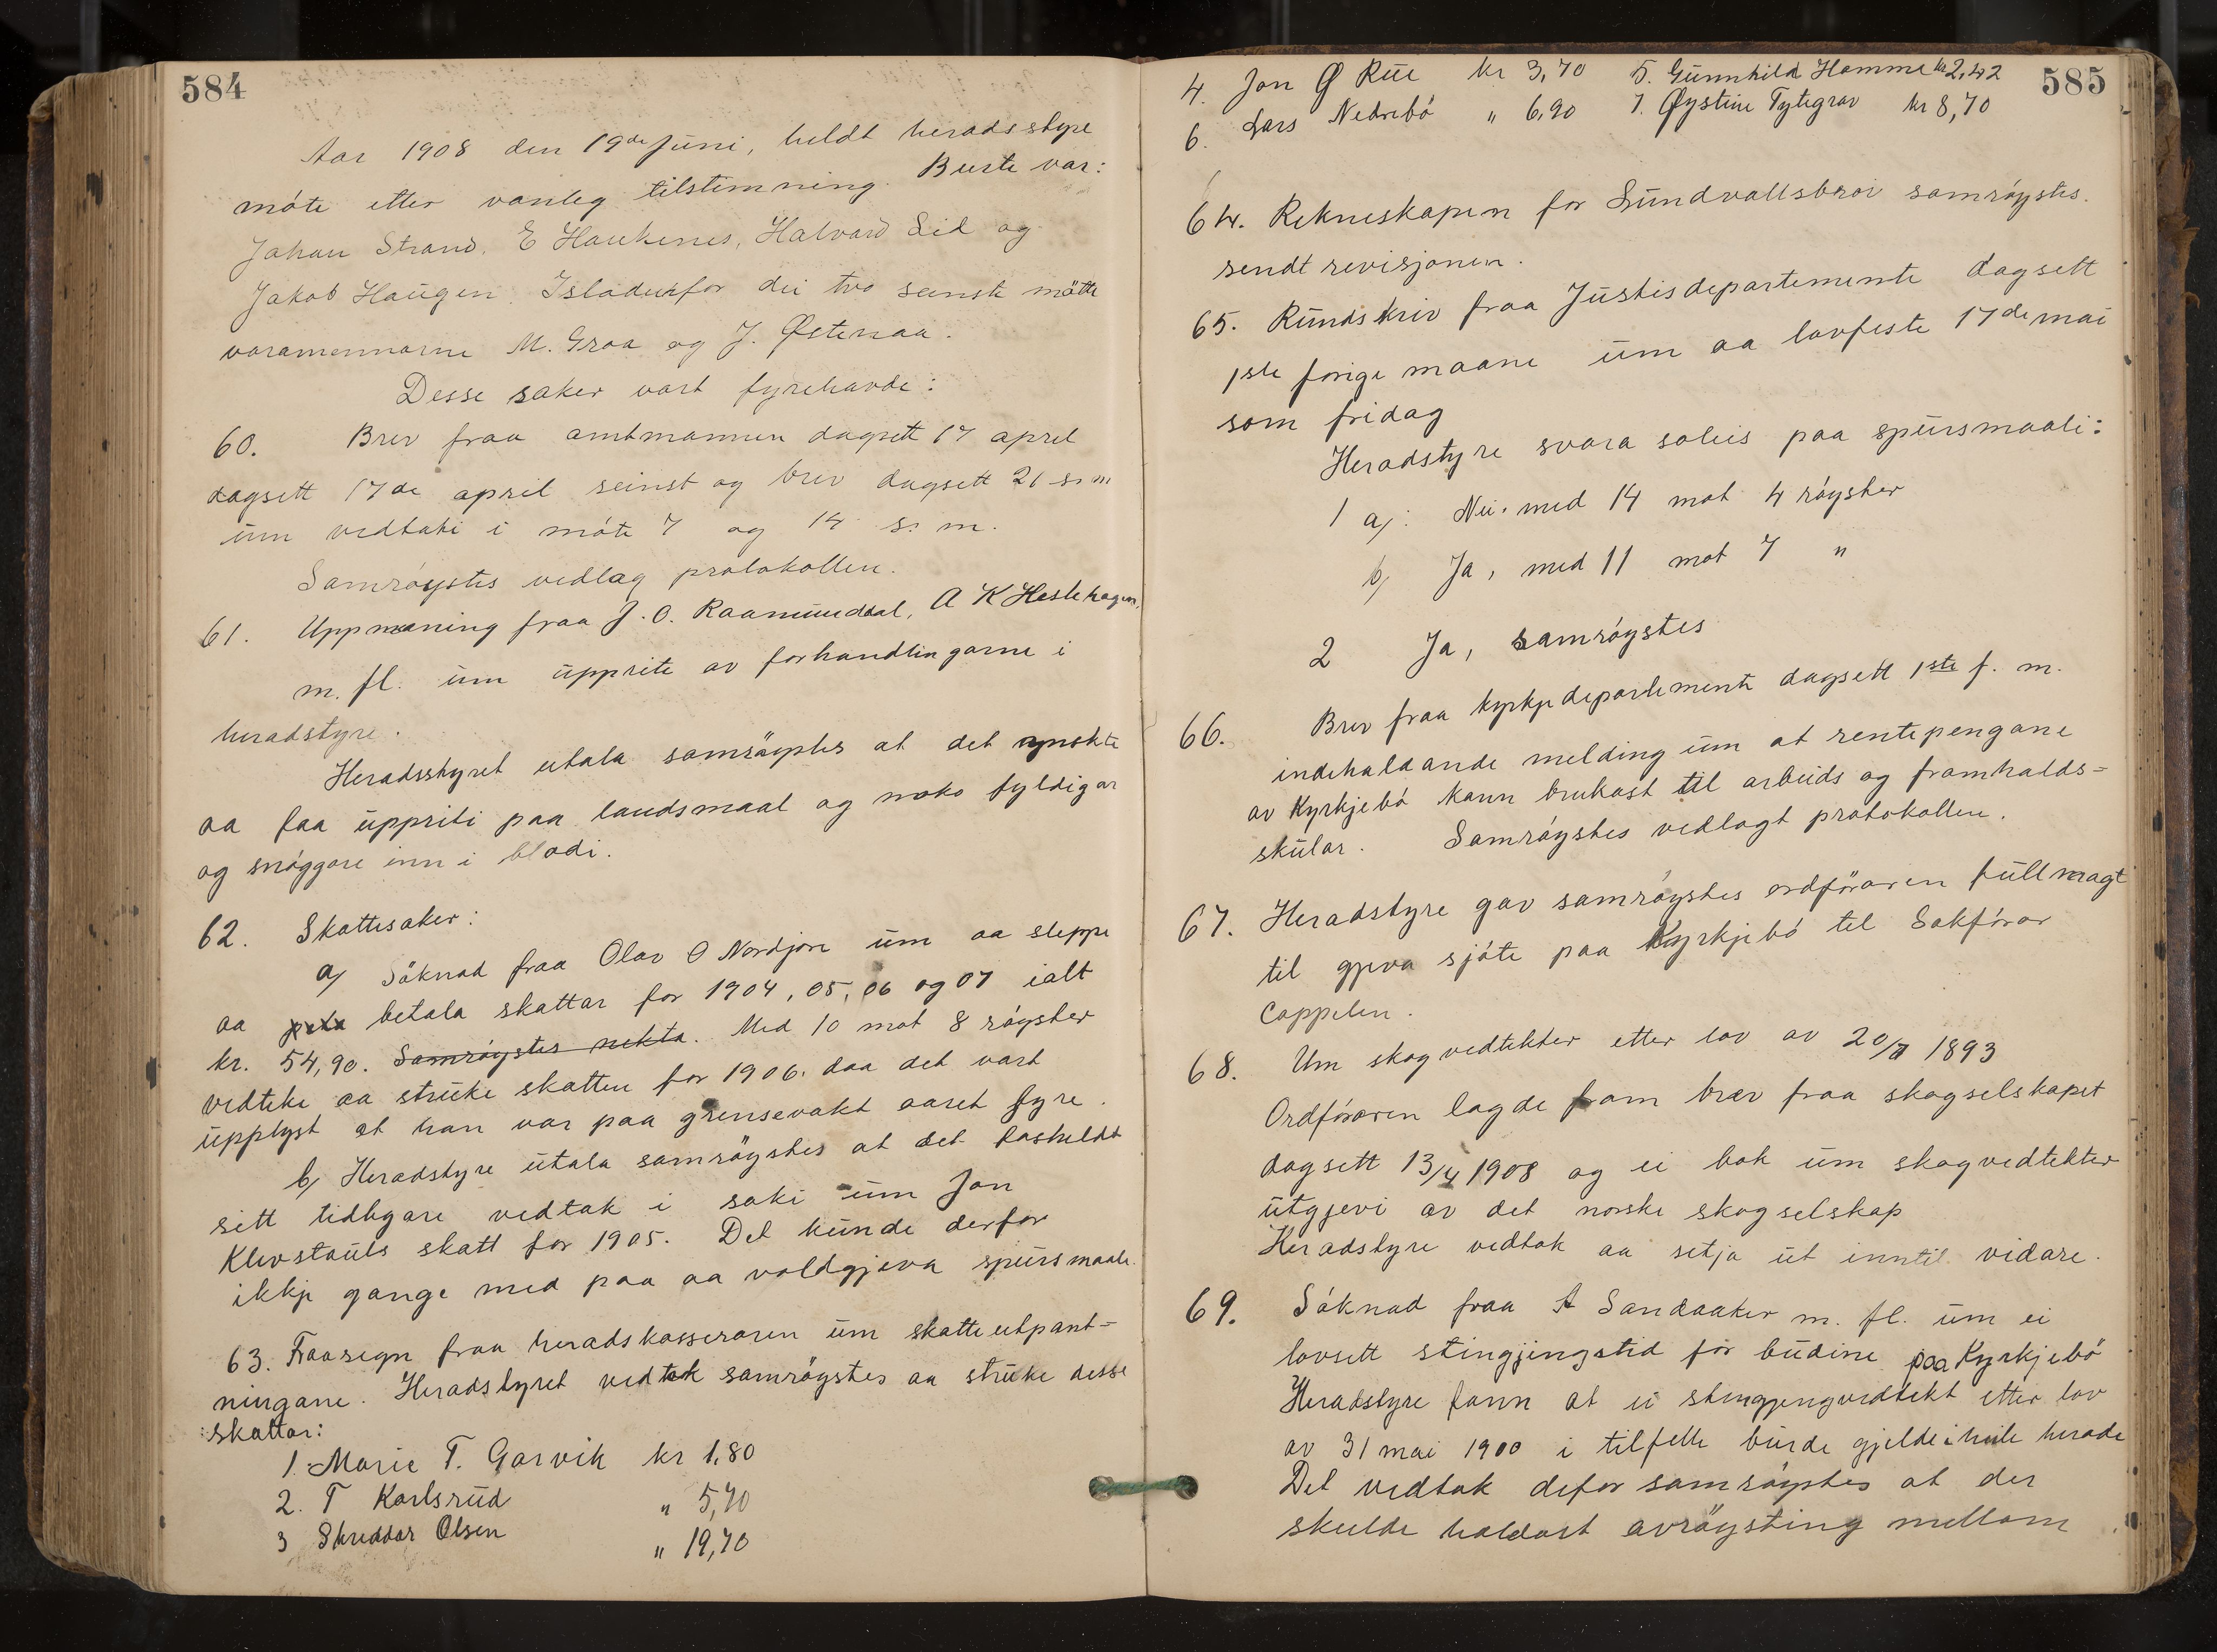 584
Aar 1908 den 19de juni, heldt heradsstyre
møte etter vanleg tilstemning. Burte var:
Johan Strand, E Haukenes, Halvard Lid og
Jakob Haugen. Isladenfor dei two seinste møtte
varamennarne M. Graa og J. Østenaa.
Desse saker vart fyrehavde:
60. Brev fraa amtmannen dagsett 17 april
dagsett 17de april seinst og brev dagsett 21 s. m
um vedtaki i møte 7 og 14 s. m.
Samrøystes vedlag protokollen.
61. Uppmaning fraa J. O. Raamunddal, A K Heslehagen,
m. fl. um upprite av forhandlingarne i
heradstyre.
Heradsstyret utala samrøystes at det ynskte
aa faa uppriti paa landsmaal og noko fyldigar
og snøggare inn i bladi.
62. Skattesaker:
a) Søknad fraa Olav O Nordjore um aa sleppe
aa betala skattar for 1904, 05, 06 og 07 ialt
kr. 54,90. Samrøystes nekta. Med 10 mot 8 røyster
vedteke aa struke skatten for 1906. daa det vart
upplyst at han var paa grensevakt aaret fyre.
b) Heradstyre utala samrøystes at det fastheldt
sitt tidlegare vedtak i saki um Jon
Klevstauls skatt for 1905. Det kunde derfor
ikkje gange med paa aa voldgjeva spursmaale.
63. Fraasegn fraa heradskasseraren um skatteutpant=
ningane. Heradstyret vedtok samrøystes aa struke desse
skattar:
1. Marie T. Garvik kr 1,80
2. T Karlsrud " 5,70
3 Skreddar Olsen " 19,70
585
4. Jon Ø Rue kr 3,70 5. Gunnhild Homme kr 2,42
6. Lars Nedrebø " 6,90 7. Øystein Tytegrav kr 8,70
64. Rekneskapen for Sundvallsbroi samrøystes.
sendt revisjonen.
65. Rundskriv fraa Justisdepartemente dagsett
1ste forige maane um aa lovfeste 17de mai
som fridag
Heradstyre svara soleis paa spursmaali:
1 a): Nei. med 14 mot 4 røyster
b) Ja, med 11 mot 7 "
2 Ja, samrøystes
66. Brev fraa kyrkjedepartemente dagsett 1ste f. m.
indehaldande melding um at rentepengane
av Kyrkjebø kann brukast til arbeids og framhalds=
skular. Samrøystes vedlagt protokollen.
67. Heradstyre gav samrøystes ordføraren fullmagt
til gjeva sjøte paa Kyrkjebø til Sakførar
Cappelen.
68. Um skogvedtekter etter lov av 20/7 1893
Ordføraren lagde fram brev fraa skogselskapet
dagsett 13/4 1908 og ei bok um skogvedtekter
utgjevi av det norske skogselskap
Heradstyre vedtok aa setja ut inntil vidare.
69. Søknad fraa A Sandaaker m. fl. um ei
lovsett stengjingstid for budine paa Kyrkjebø
Heradstyre fann at ei stengjengvedtekt etter lov
av 31 mai 1900 i tilfelle burde gjelde i heile herade
Det vedtok defor samrøystes at der
skulde haldast avrøysting mellom